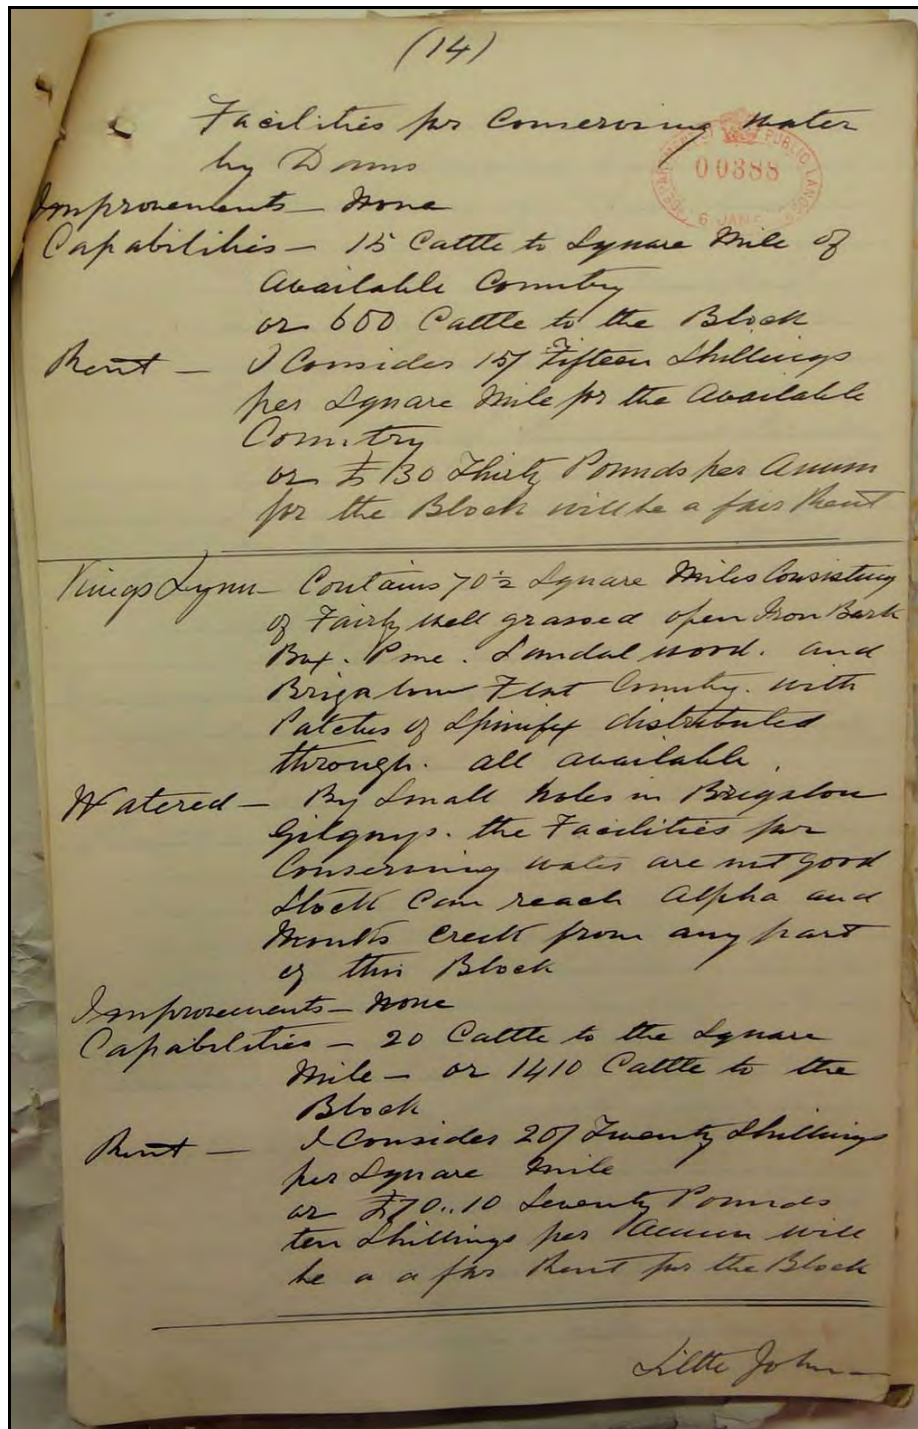 (14)
Facilities for Conserving Water
by Dams
DEPARTMENT OF PUBLIC LANDS
00388
6 JAN
Improvements — None
Capabilities — 15 Cattle to Square Mile of
Available Country
or 600 Cattle to the Block
Rent — I Consider 15/ Fifteen Shillings
per Square Mile for the Available
Country
or £30 Thirty Pounds per Anum
for the Block will be a fair Rent
Kings Lynn — Contains 70½ Square Miles Consisting
of Fairly well grassed open Iron Bark
Box. Pine. Sandal wood. and
Brigalow Flat Country. with
Patches of Spinifex distributed
through. all available.
Watered — By Small holes in Brigalow
Gilgays. the Facilities for
Conserving water are not good
Stock Can reach Alpha and
Creek from any part
of this Block
Improvements — None
Capabilities — 20 Cattle to the Square
Mile — or 1410 Cattle to the
Block
Rent — I Consider 20/ Twenty Shillings
per Square Mile
or £70..10 Seventy Pounds
ten Shillings per Annum will
be a a fair Rent for the Block
Little John —